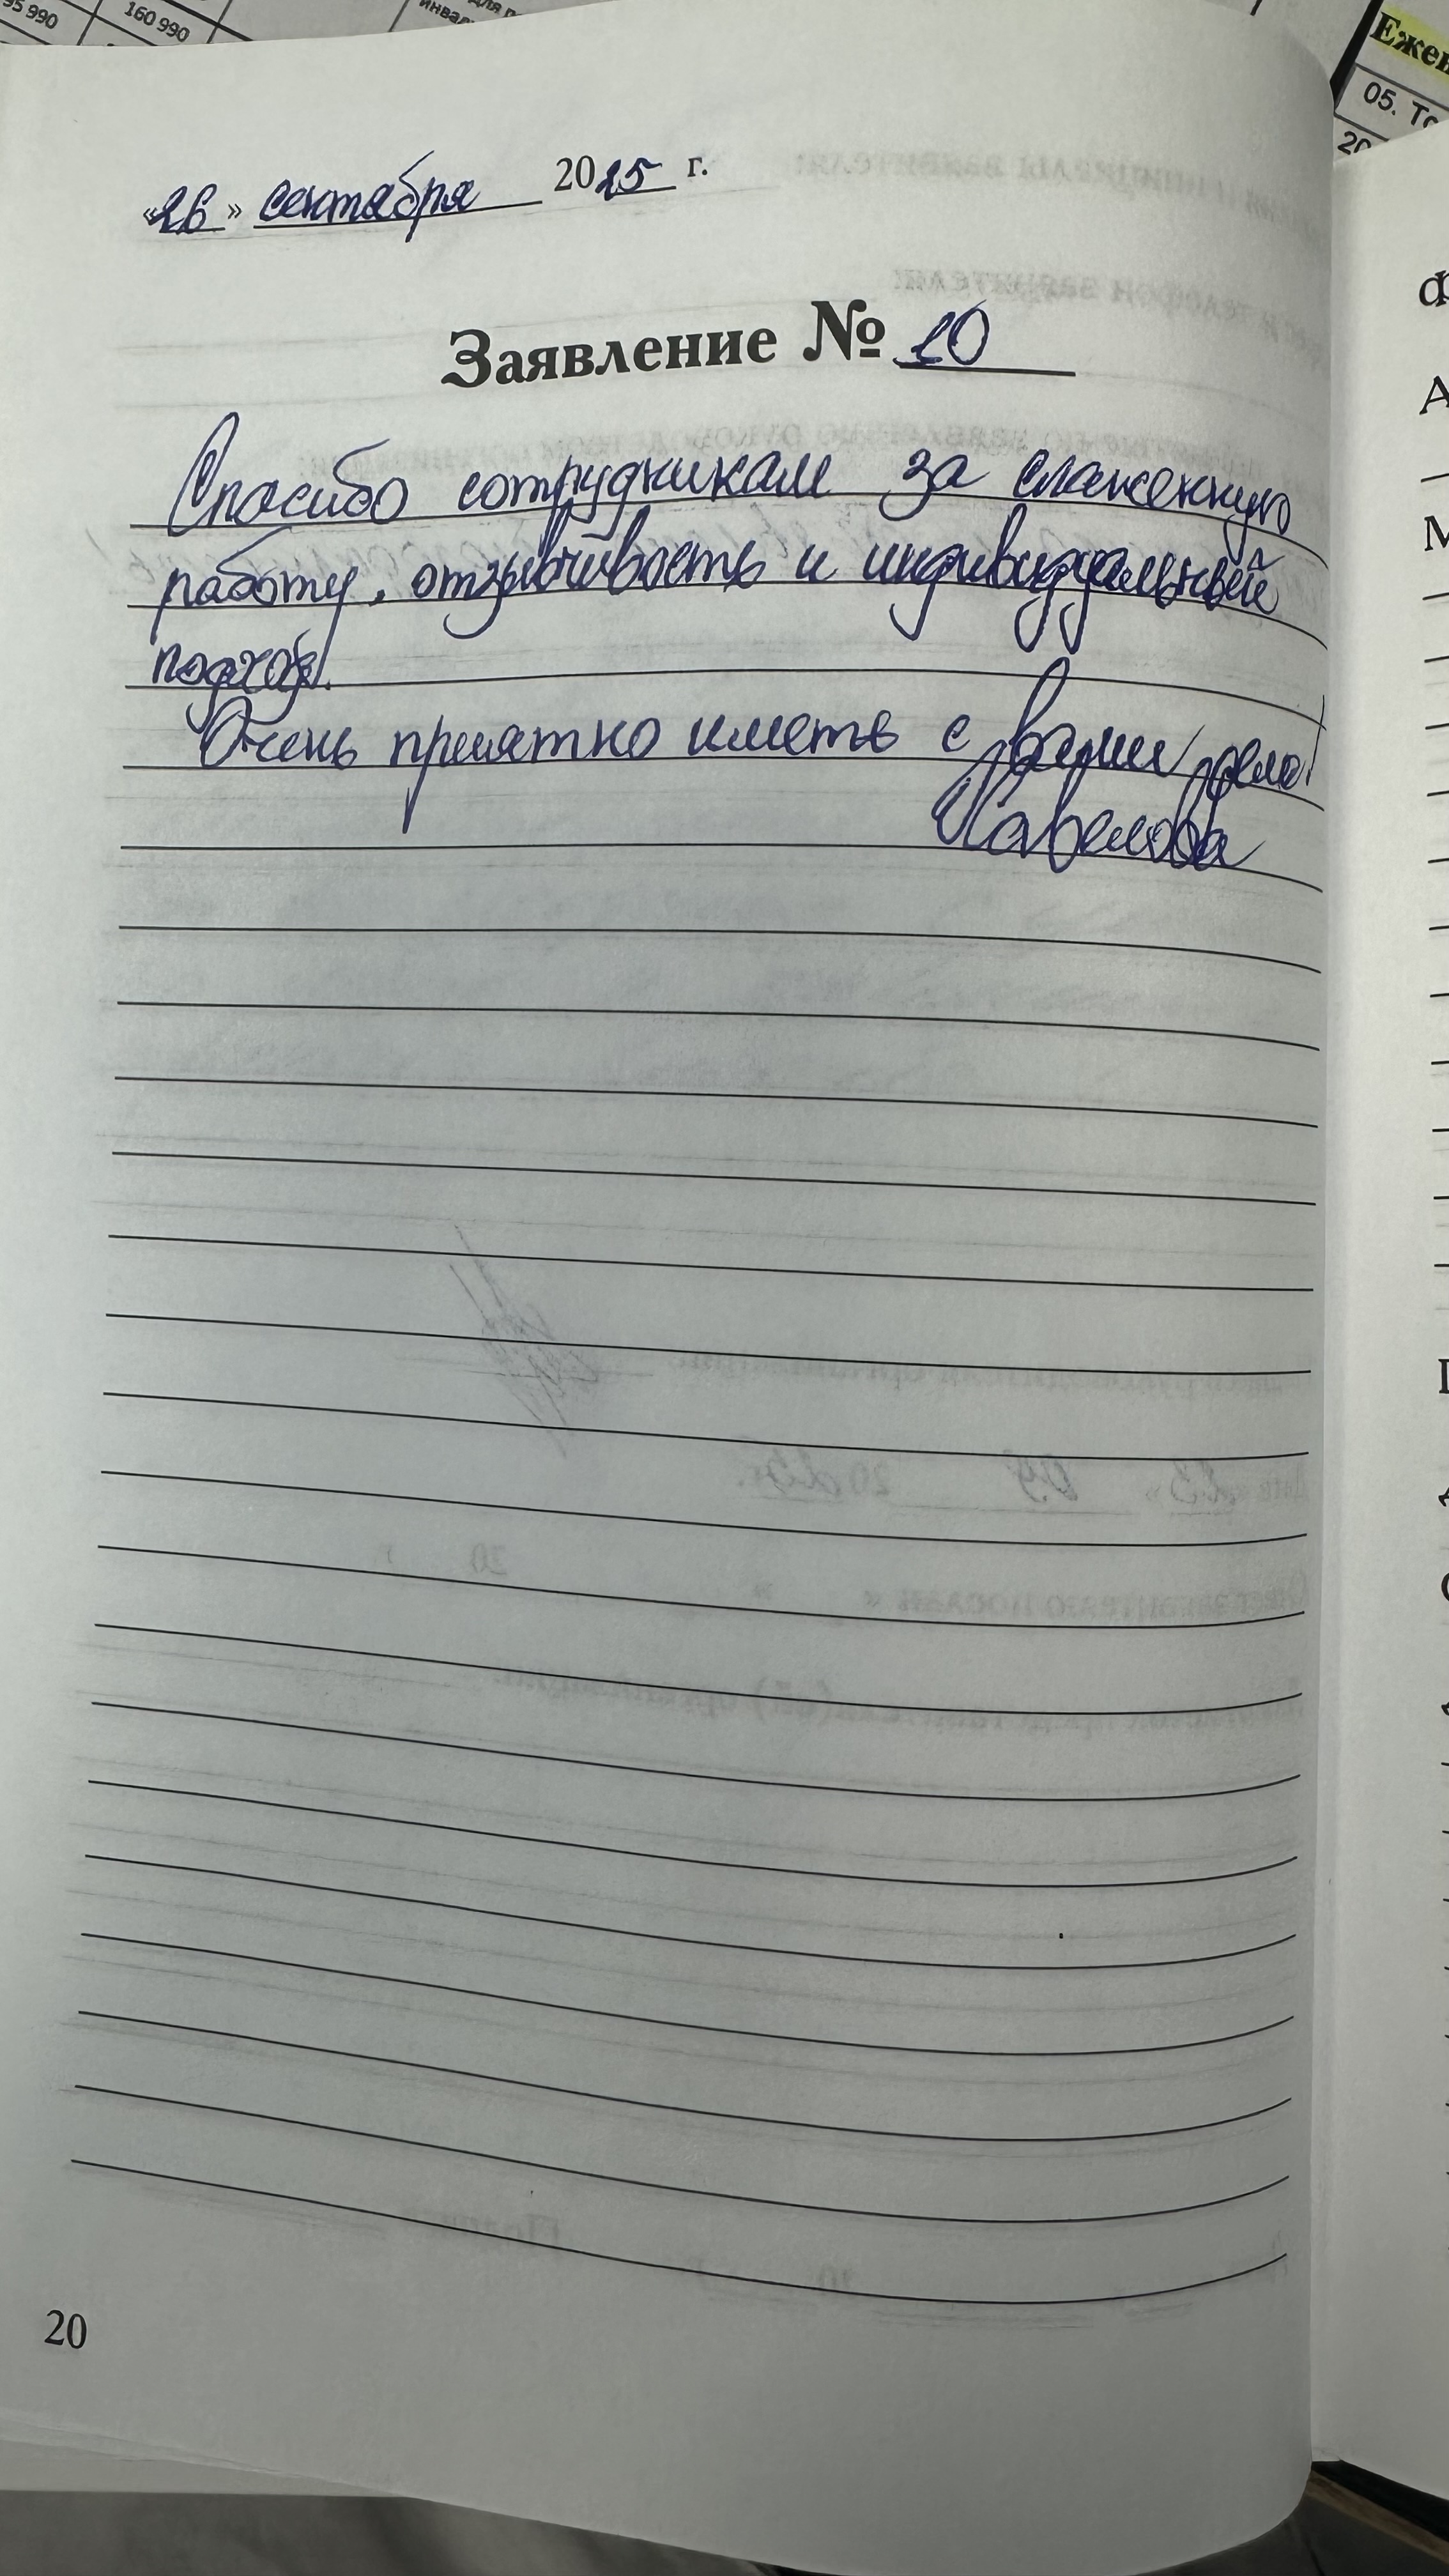 95 990
160 990
Ежен
05. То
20
«26» сентября 2025 г.
Заявление № 10
Спасибо сотрудникам за слаженную
работу, отзывчивость и индивидуальный
подход.
Очень приятно иметь с вами дело!
20